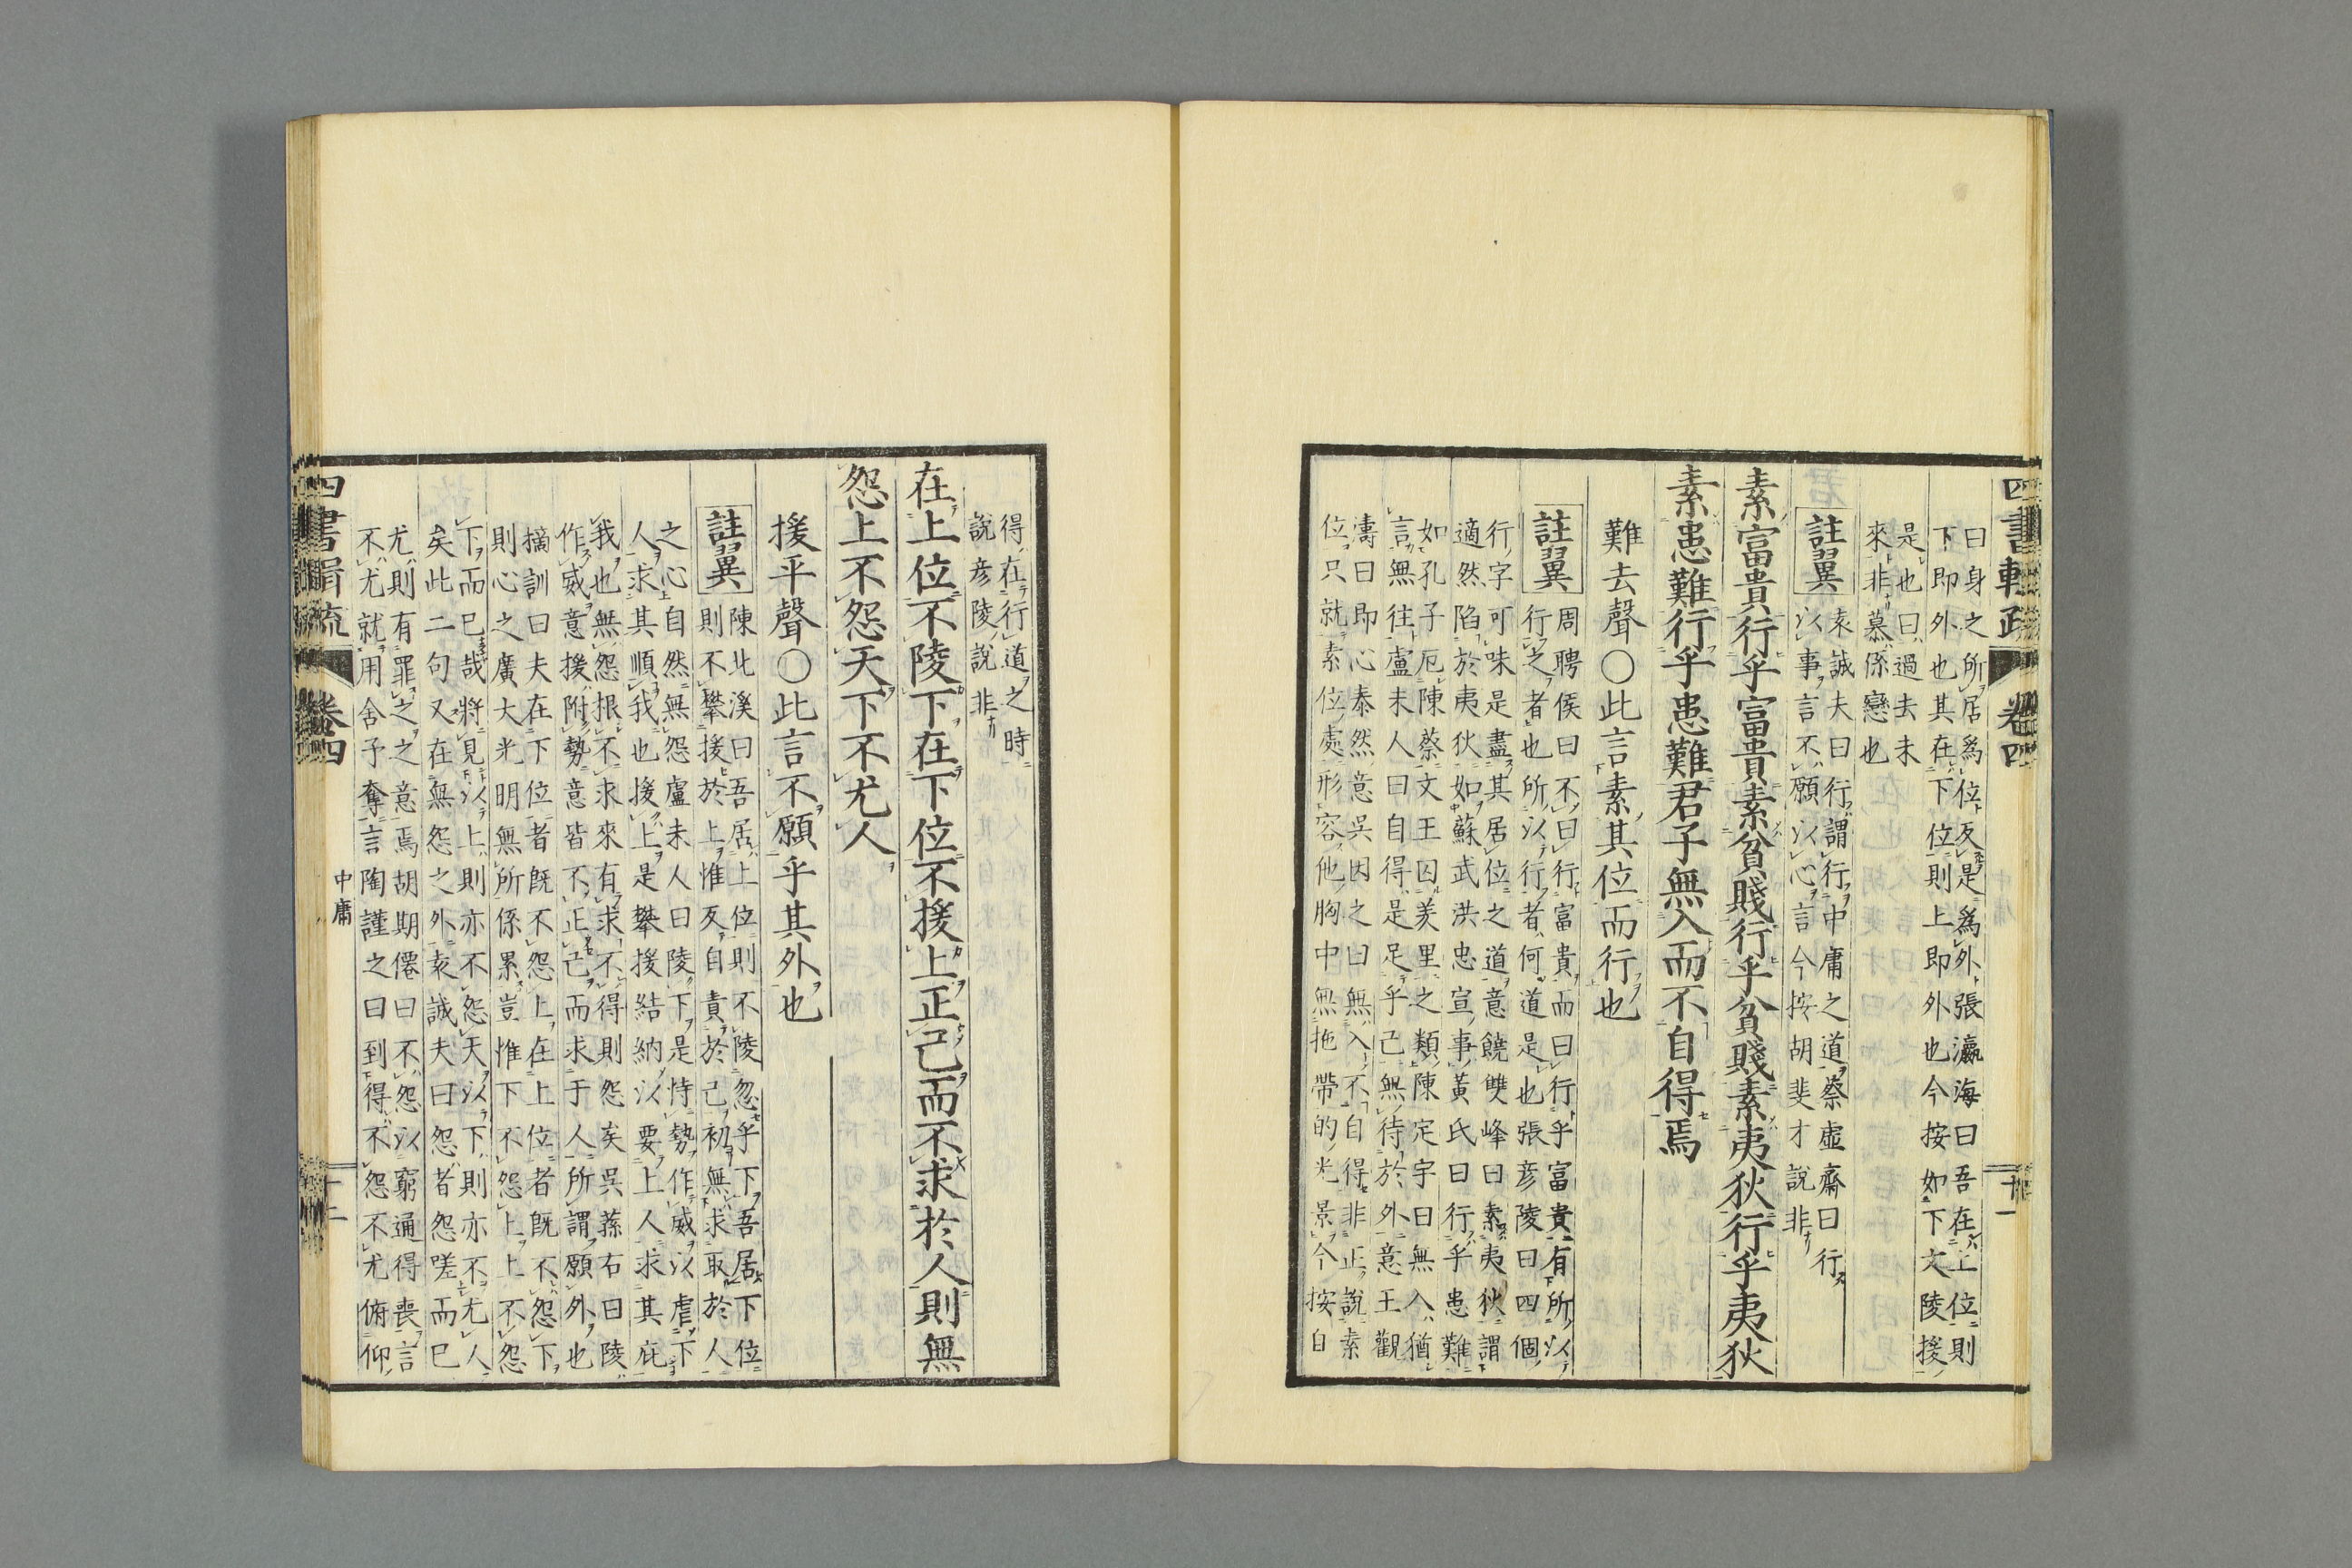 四書輯疏
卷四
十一
曰身之所居爲位反是爲外張瀛海曰吾在上位則
下即外也其在下位則上即外也今按如下文陵援
是也曰過去未
來非慕係戀也
註翼
袁誠夫曰行謂行中庸之道蔡虛齋曰行
以事言不願以心言今按胡斐才說非
素富貴行乎富貴素貧賤行乎貧賤素夷狄行乎夷狄
素患難行乎患難君子無入而不自得焉
難去聲○此言素其位而行也
註翼
周聘侯曰不曰行富貴而曰行乎富貴有所以
行之者也所以行者何道是也張彥陵曰四個
行字可味是盡其居位之道意饒雙峰曰素夷狄謂
適然陷於夷狄如蘇武洪忠宣事黃氏曰行乎患難
如孔子厄陳蔡文王囚羑里之類陳定宇曰無入猶
言無往盧未人曰自得是足乎己無待於外意王觀
濤曰即心泰然意吳因之曰無入不自得非正說素
位只就素位處形容他胸中無拖帶的光景今按自
得在行道之時
說彥陵說非
在上位不陵下在下位不援上正己而不求於人則無
怨上不怨天下不尤人
援平聲○此言不願乎其外也
註翼
陳北溪曰吾居上位則不陵忽乎下吾居下位
則不攀援於上惟反自責於己初無求取於人
之心自然無怨盧未人曰陵下是恃勢作威以虐下
人求其順我也援上是攀援結納以要上人求其庇
我也無怨根不求來有求不得則怨矣吳蓀右曰陵
作威意援附勢意皆不正己而求于人所謂願外也
摘訓曰夫在下位者既不怨上在上位者既不怨下
則心之廣大光明無所係累豈惟下不怨上上不怨
下而已哉將見以上則亦不怨天以下則亦不尤人
矣此二句又在無怨之外袁誠夫曰怨者怨嗟而已
尤則有罪之之意焉胡期僊曰不怨以窮通得喪言
不尤就用舍予奪言陶謹之曰到得不怨不尤俯仰
中庸
四書輯疏
卷四